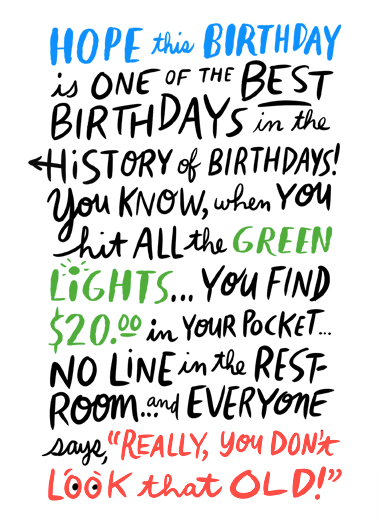 HOPE this BIRTHDAY
is ONE OF THE BEST
BIRTHDAYS in the
HISTORY of BIRTHDAYS!
You KNOW, when YOU
hit ALL the GREEN
LIGHTS... YOU FIND
$20.00 in YOUR POCKET...
NO LINE in the REST-
ROOM...and EVERYONE
says, "REALLY, YOU DON'T
LOOK that OLD!"